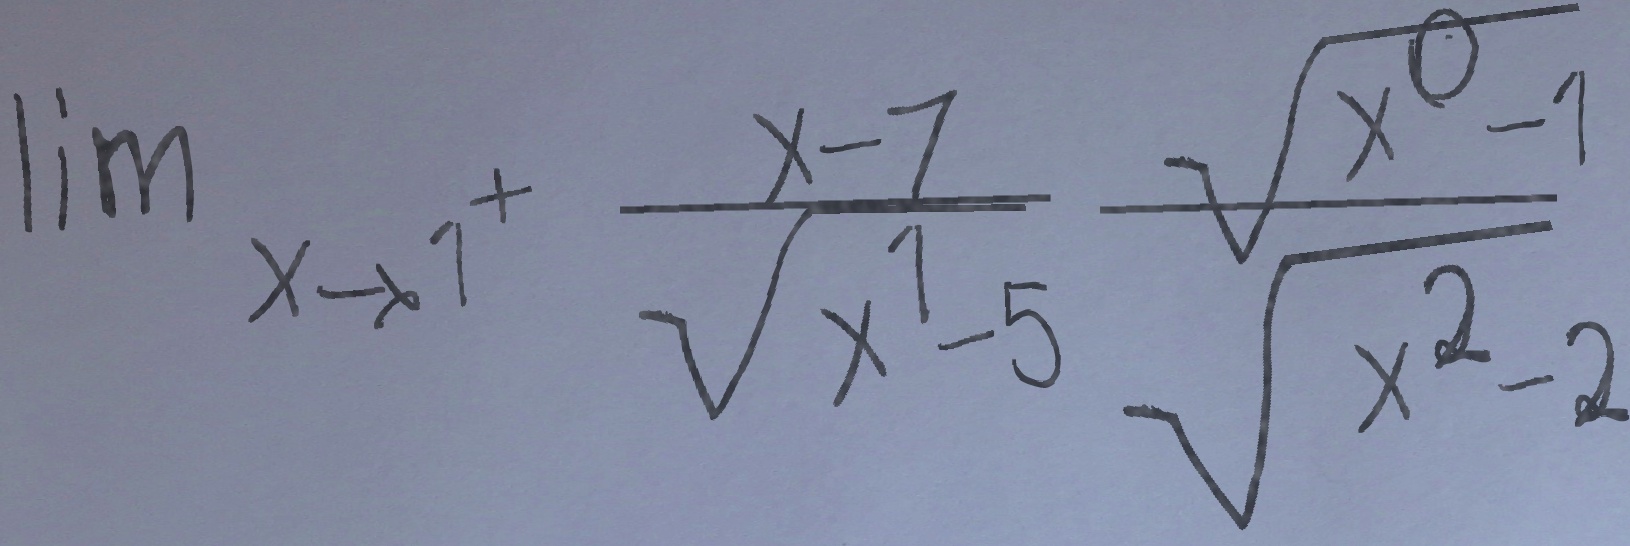 \lim_{x \to 1^+} \frac{x-7}{\sqrt{x^1-5}} \frac{\sqrt{x^0-1}}{\sqrt{x^2-2}}